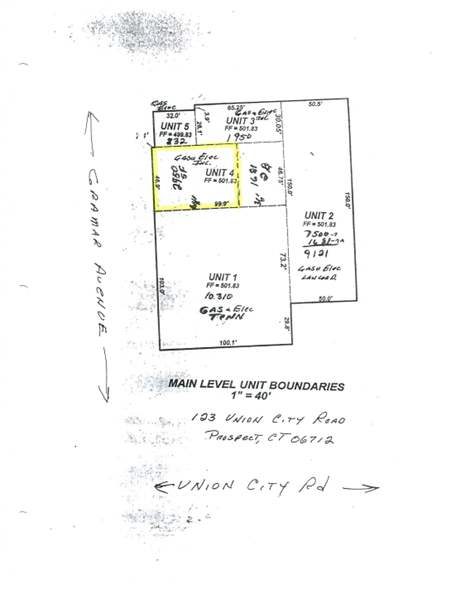 32.0'
UNIT 5
FF = 499.83
832
65.25'
GAS & Elec
Inc
UNIT 3
FF = 501.83
1950
3.9'
26.1'
30.05'
50.5'
GAS & Elec
Inc.
UNIT 4
FF = 501.83
46.9'
99.9'
1871
46.75'
150.0'
150.0'
UNIT 2
FF = 501.83
7500
9121
GAS & Elec
50.0'
73.2'
29.8'
103.0'
UNIT 1
FF = 501.83
10,310
GAS & Elec
100.1'
GRAMAR AVENUE
MAIN LEVEL UNIT BOUNDARIES
1" = 40'
123 UNION CITY ROAD
PROSPECT, CT 06712
UNION CITY Rd